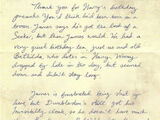 Thank you for Harry's birthday
presents! You'd think he'd been born in a
broom, James says he's got the look of a
Seeker, but then James would. We had a
very quiet birthday tea, just us and old
Bathilda, who dotes on Harry. Wormy
dropped by late in the day, but seemed
down, and didn't stay long.
James is frustrated being shut up
here, but Dumbledore's still got his
Invisibility cloak, so he can't have much